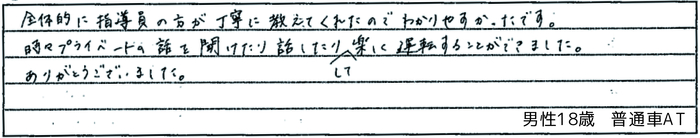 全体的に指導員の方が丁寧に教えてくれたのでわかりやすかったです。
時々プライベートの話を聞けたり話したりして楽しく運転することができました。
ありがとうございました。
男性18歳 普通車AT